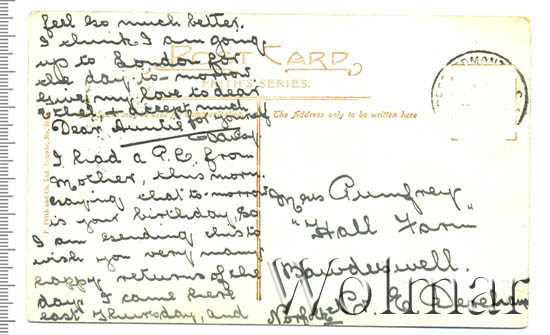 feel so much better.
I think I am going
up to London for
the day to-morrow
Give my love to dear
Ethel & accept much
for yourself
Daisy
POST CARD
FRITH'S SERIES.
The Address only to be written here
Dear Auntie
I had a P.C. from
Mother, this morn.
saying that to-morrow
is your birthday, so
I am sending this to
wish you very many
happy returns of the
day. I came here
last Thursday, and
Mrs Pumfrey
"Hall Farm"
Bawdeswell.
Nr E. Dereham
Norfolk
Wolmar